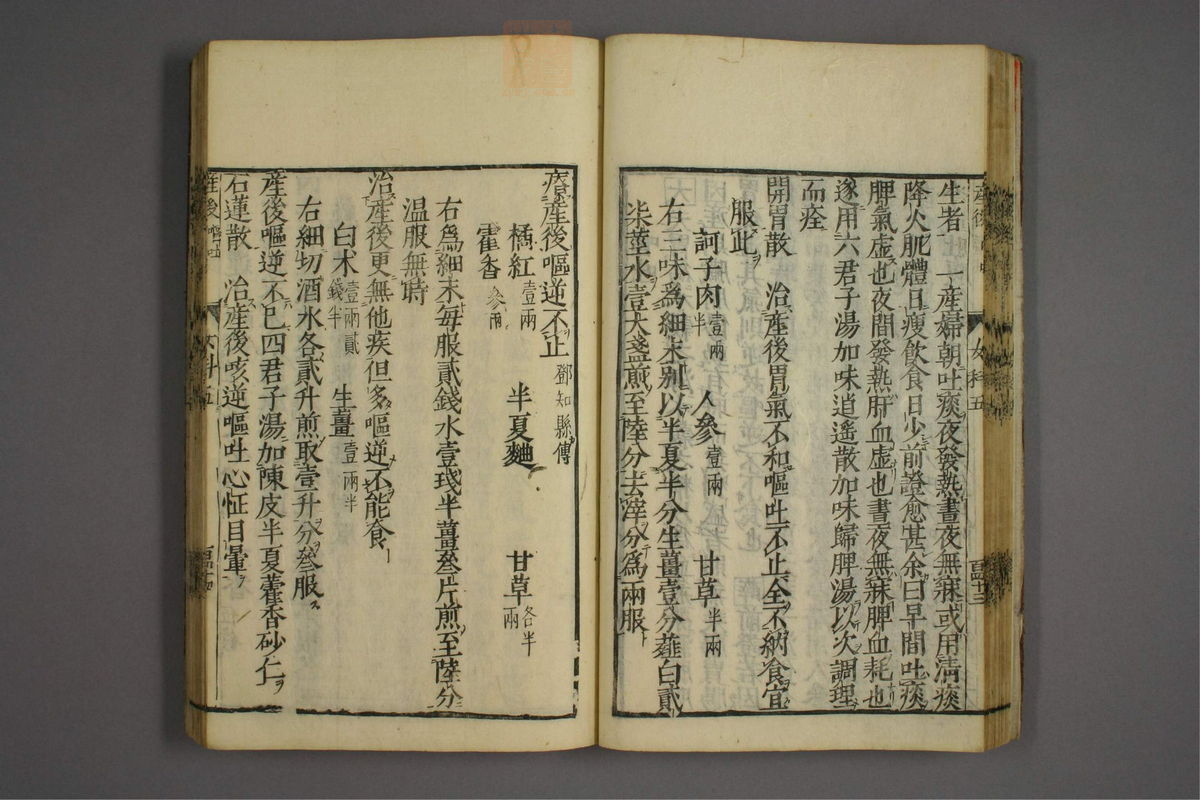 生者　一産婦朝吐痰夜發熱晝夜無寐或用淸痰
降火肌體日瘦飮食日少前證愈甚余曰早間吐痰
脾氣虛也夜間發熱肝血虛也晝夜無寐脾血耗也
遂用六君子湯加味逍遙散加味歸脾湯以次調理
而痊
開胃散　治産後胃氣不和嘔吐不止全不納食宜
服此
訶子肉壹兩半　人參壹兩　甘草半兩
右三味爲細末別以半夏半分生薑壹分薤白貳
柒莖水壹大盞煎至陸分去滓分爲兩服
産後
女科五
産後嘔逆不止鄧知縣傳
橘紅壹兩　半夏麯　甘草各半兩
藿香參兩
右爲細末每服貳錢水壹琖半薑叄片煎至陸分
溫服無時
治産後更無他疾但多嘔逆不能食
白术壹兩貳錢半　生薑壹兩半
右細切酒水各貳升煎取壹升分叄服
産後嘔逆不已四君子湯加陳皮半夏藿香砂仁
石蓮散　治産後咳逆嘔吐心怔目暈
産後
女科五